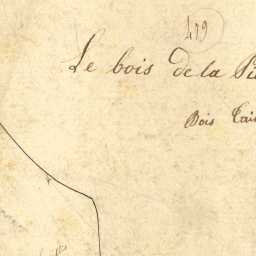 419
Le bois de la
Bois Tai